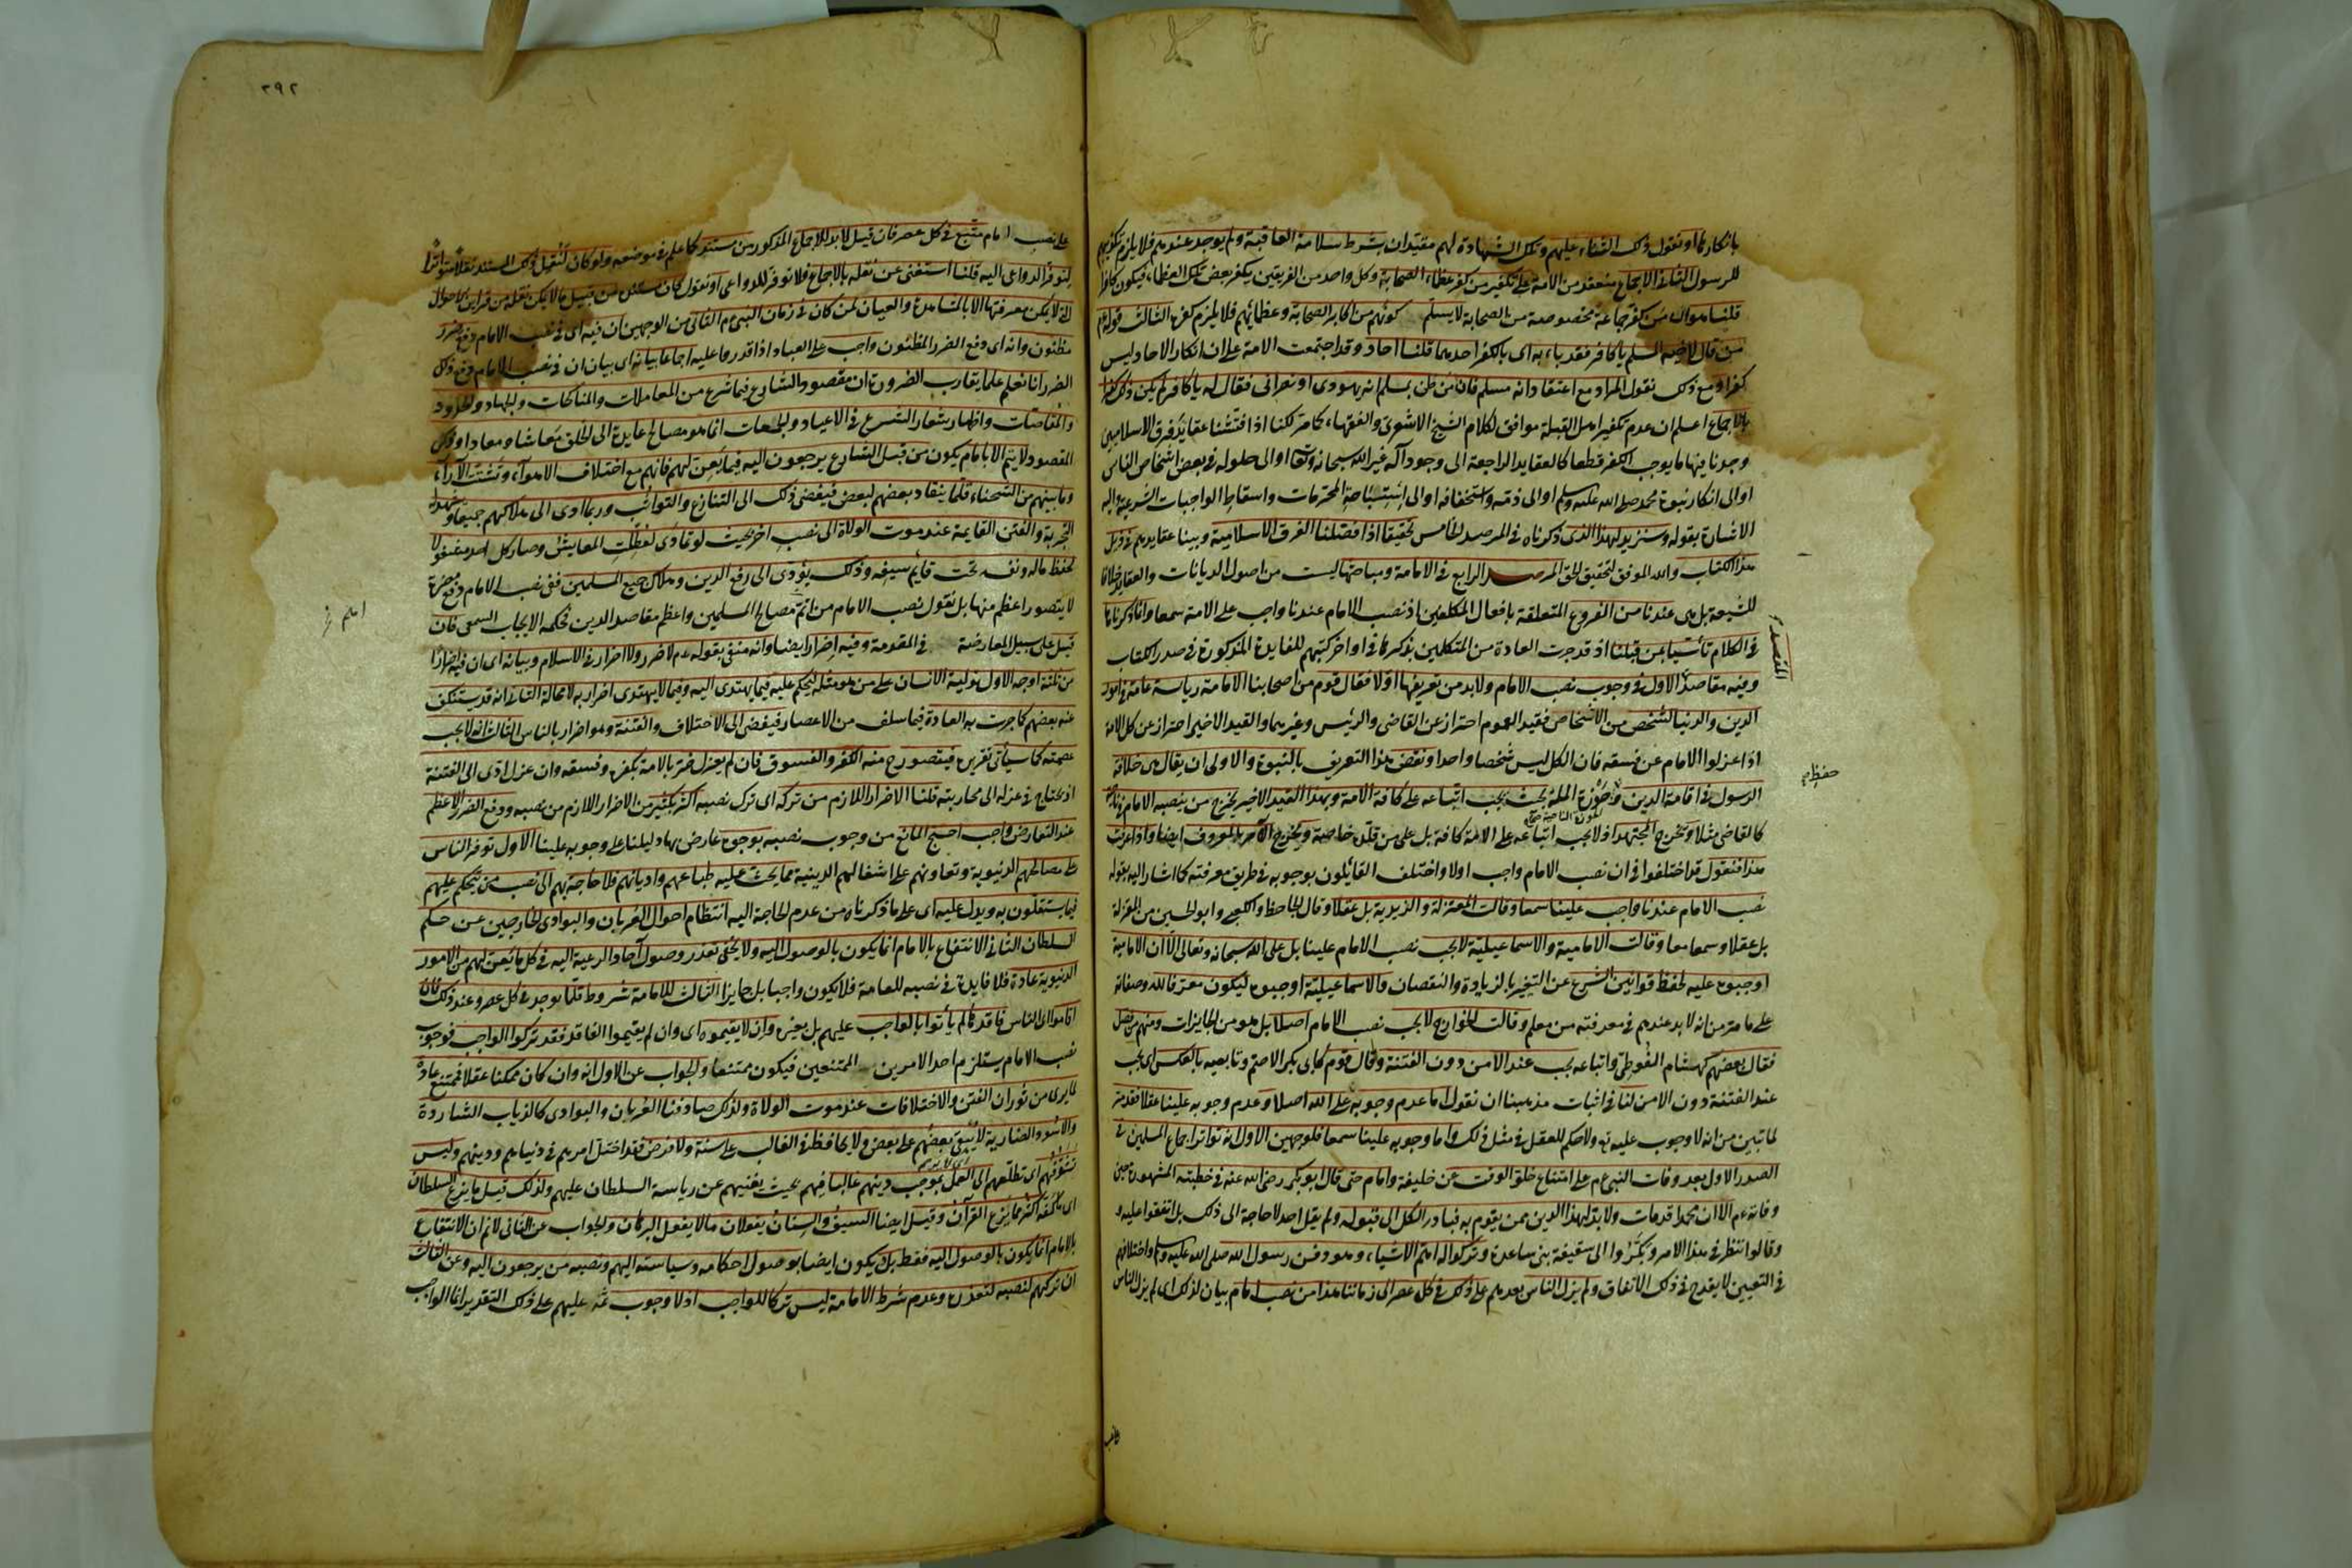 بانكارها او نقول ذلك الثناء عليهم وتلك الشهادة لهم مقيدان بشرط سلامة العاقبة ولم يوجد عندهم فلا يلزم تكذيبهم
للرسول الثانى الاجماع منعقد من الامة على تكفير من كفر عظماء الصحابة وكل واحد من الفريقين يكفر بعض تلك العظماء فيكون كافرا
قلنا هو اى من كفر جماعة مخصوصة من الصحابة لا يسلم كونهم من اكابر الصحابة وعظمائهم فلا يلزم كفره الثالث قوله عم
من قال لاخيه المسلم يا كافر فقد باء به اى بالكفر احدهما قلنا احاد وقد اجتمعت الامة على ان انكار الاحاد ليس
كفرا ومع ذلك نقول المراد مع اعتقاد انه مسلم فان من ظن بمسلم انه يهودى او نصرانى فقال له يا كافر لم يكن ذلك كفرا
بالاجماع اعلم ان عدم تكفير اهل القبلة موافق لكلام الشيخ الاشعرى والفقهاء كما مر لكنا اذا فتشنا عقايد فرق الاسلاميين
وجدنا فيها ما يوجب الكفر قطعا كالعقايد الراجعة الى وجود آله غير الله سبحانه وتعا او الى حلوله فى بعض اشخاص الناس
او الى انكار نبوة محمد صلى الله عليه وسلم او الى ذمه واستخفافه او الى استباحة المحرمات واسقاط الواجبات الشرعية واليه
الاشارة بقوله وسنزيد لهذا الذى ذكرناه فى المرصد الخامس تحقيقا اذا فصلنا الفرق الاسلامية وبينا عقايدهم فى ذيل
هذا الكتاب والله الموفق لتحقيق الحق المرصد الرابع فى الامامة ومباحثها ليست من اصول الديانات والعقايد خلافا
للشيعة بل هى عندنا من الفروع المتعلقة بافعال المكلفين اذ نصب الامام عندنا واجب على الامة سمعا وانما ذكرناها
فى الكلام تأسيا بمن قبلنا اذ قد جرت العادة من المتكلمين بذكرها فى اواخر كتبهم للفايدة المذكورة فى صدر الكتاب
وفيه مقاصد الاول فى وجوب نصب الامام ولا بد من تعريفها اولا فقال قوم من اصحابنا الامامة رياسة عامة فى امور
الدين والدنيا لشخص من الاشخاص فقيد العموم احتراز عن القاضى والرئيس وغيرهما والقيد الاخير احتراز عن كل الامة
اذا عزلوا الامام عن فسقه فان الكل ليس شخصا واحدا ونقض هذا التعريف بالنبوة والاولى ان يقال هى خلافة
الرسول فى اقامة الدين وحوزة الملة بحيث يجب اتباعه على كافة الامة وبهذا القيد الاخير يخرج من ينصبه الامام فى ناحية
كالقاضى مثلا ويخرج المجتهد اذ لا يجب اتباعه على الامة كافة بل على من قلده خاصة ويخرج الآمر بالمعروف ايضا واذا عرفت
هذا فنقول قد اختلفوا فى ان نصب الامام واجب اولا واختلف القائلون بوجوبه فى طريق معرفته كما اشار اليه بقوله
نصب الامام عندنا واجب علينا سمعا وقالت المعتزلة والزيدية بل عقلا وقال الجاحظ والكعبى وابو الحسين من المعتزلة
بل عقلا وسمعا معا وقالت الامامية والاسماعيلية لا يجب نصب الامام علينا بل على الله سبحانه وتعالى الا ان الامامية
اوجبوه عليه لحفظ قوانين الشرع عن التغير بالزيادة والنقصان والاسماعيلية اوجبوه ليكون معرفا لله وصفاته
على ما مر من انه لا بد عندهم فى معرفته من معلم وقالت الخوارج لا يجب نصب الامام اصلا بل هو من الجايزات ومنهم من فصل
فقال بعضهم كهشام الفوطى واتباعه يجب عند الامن دون الفتنة وقال قوم كابى بكر الاصم وتابعيه بالعكس اى يجب
عند الفتنة دون الامن لنا فى اثبات مذهبنا ان نقول اما عدم وجوبه على الله اصلا وعدم وجوبه علينا عقلا فقد مر
لما تبين من انه لا وجوب عليه تع ولا حكم للعقل فى مثل ذلك واما وجوبه علينا سمعا فلوجهين الاول انه تواتر اجماع المسلمين فى
الصدر الاول بعد وفات النبى عم على امتناع خلو الوقت عن خليفة وامام حتى قال ابو بكر رضى الله عنه فى خطبته المشهورة حين
وفاته عم الا ان محمدا قد مات ولا بد لهذا الدين ممن يقوم به فبادر الكل الى قبوله ولم يقل احد لا حاجة الى ذلك بل اتفقوا عليه و
وقالوا ننظر فى هذا الامر وبكروا الى سقيفة بنى ساعدة وتركوا له اهم الاشياء وهو دفن رسول الله صلى الله عليه وسلم واختلافهم
فى التعيين لا يقدح فى ذلك الاتفاق ولم يزل الناس بعدهم على ذلك فى كل عصر الى زماننا هذا من نصب امام بيان لذلك اى لم يزل الناس
المقصد
حفظ
٣٩٢
على نصب امام متبع فى كل عصر فان قيل لا بد للاجماع المذكور من مستند كما علم فى موضعه ولو كان لنقل ذلك المستند نقلا متواترا
لتوفر الدواعى اليه قلنا استغنى عن نقله بالاجماع فلا توفر للدواعى او نقول كان مستنده من قبيل ما لا يمكن نقله من قراين الاحوال
التى لا يمكن معرفتها الا بالمشاهدة والعيان لمن كان فى زمان النبى عم الثانى من الوجهين ان فيه اى فى نصب الامام دفع ضرر
مظنون وانه اى دفع الضرر المظنون واجب على العباد اذا قدروا عليه اجماعا بيانه اى بيان ان فى نصب الامام دفع ذلك
الضرر انا نعلم علما يقارب الضرورة ان مقصود الشارع فيما شرع من المعاملات والمناكحات والجهاد والحدود
والمقاصات واظهار شعار الشرع فى الاعياد والجمعات انما هو مصالح عايدة الى الخلق معاشا ومعادا وذلك
المقصود لا يتم الا بامام يكون من قبل الشارع يرجعون اليه فيما يعن لهم فانهم مع اختلاف الاهواء وتشتت الآراء
وما بينهم من الشحناء قلما ينقاد بعضهم لبعض فيفضى ذلك الى التنازع والتواثب وربما ادى الى هلاكهم جميعا ويشهد له
التجربة والفتن القايمة عند موت الولاة الى نصب اخر بحيث لو تمادى لعطلت المعايش وصار كل احد مشغولا
بحفظ ماله ونفسه تحت قايم سيفه وذلك يؤدى الى رفع الدين وهلاك جميع المسلمين ففى نصب الامام دفع مضرة
لا يتصور اعظم منها بل نقول نصب الامام من اتم مصالح المسلمين واعظم مقاصد الدين فحكمه الايجاب السمعى فان
قيل على سبيل المعارضة فى المقدمة وفيه اضرار ايضا وانه منفى بقوله عم لا ضرر ولا اضرار فى الاسلام وبيانه اى ان فيه اضرارا
من ثلثة اوجه الاول تولية الانسان على من هو مثله ليحكم عليه فيما يهتدى اليه وفيما لا يهتدى اضرار به لا محالة الثانى انه قد يستنكف
عنه بعضهم كما جرت به العادة فيما سلف من الاعصار فيفضى الى الاختلاف والفتنة وهو اضرار بالناس الثالث انه لا يجب
عصمته كما سيأتى تقريره فيتصور ح منه الكفر والفسوق فان لم يعزل ضر بالامة بكفره وفسقه وان عزل ادى الى الفتنة
اذ يحتاج فى عزله الى محاربته قلنا الاضرار اللازم من تركه اى ترك نصبه اكثر بكثير من الاضرار اللازم من نصبه ودفع الضرر الاعظم
عند التعارض واجب احتج المانع من وجوب نصبه بوجوه عارض بها دليلنا على وجوبه علينا الاول توفر الناس
على مصالحهم الدنيوية وتعاونهم على اشغالهم الدينية مما يحث عليه طباعهم واديانهم فلا حاجة بهم الى نصب من يحكم عليهم
فيما يستقلون به ويدل عليه اى على ما ذكرناه من عدم الحاجة اليه انتظام احوال العربان والبوادى الخارجين عن حكم
السلطان الثانى الانتفاع بالامام انما يكون بالوصول اليه ولا يخفى تعذر وصول آحاد الرعية اليه فى كل ما يعن لهم من الامور
الدنيوية عادة فلا فايدة فى نصبه للعامة فلا يكون واجبا بل جايزا الثالث للامامة شروط قلما يوجد فى كل عصر وعند ذلك فان
اقاموا اى الناس فاقدها لم يأتوا بالواجب عليهم بل بغيره وان لا يقيموه اى وان لم يقيموا الفاقد فقد تركوا الواجب فوجوب
نصب الامام يستلزم احد الامرين الممتنعين فيكون ممتنعا والجواب عن الاول انه وان كان ممكنا عقلا فممتنع عادة
لما يرى من ثوران الفتن والاختلافات عند موت الولاة ولذلك صادفنا العربان والبوادى كالذياب الشاردة
والاسود الضارية لا يبقى بعضهم على بعض ولا يحافظ فى الغالب على سنة ولا فرض فقد اختل امرهم فى دنياهم ودينهم وليس
تشوفهم اى تطلعهم الى العمل بموجب دينهم غالبا فيهم بحيث يغنيهم عن رياسة السلطان عليهم ولذلك قيل ما يزع السلطان
اى ما يكفه اكثر مما يزع القرآن وقيل ايضا السيف والسنان يفعلان ما لا يفعل البرهان والجواب عن الثانى لا نم ان الانتفاع
بالامام انما يكون بالوصول اليه فقط بل يكون ايضا بوصول احكامه وسياسته اليهم ونصبه من يرجعون اليه وعن الثالث
ان تركهم لنصبه لتعذره وعدم شرط الامامة ليس تركا للواجب اذ لا وجوب ثمه عليهم على ذلك التقدير انما الواجب